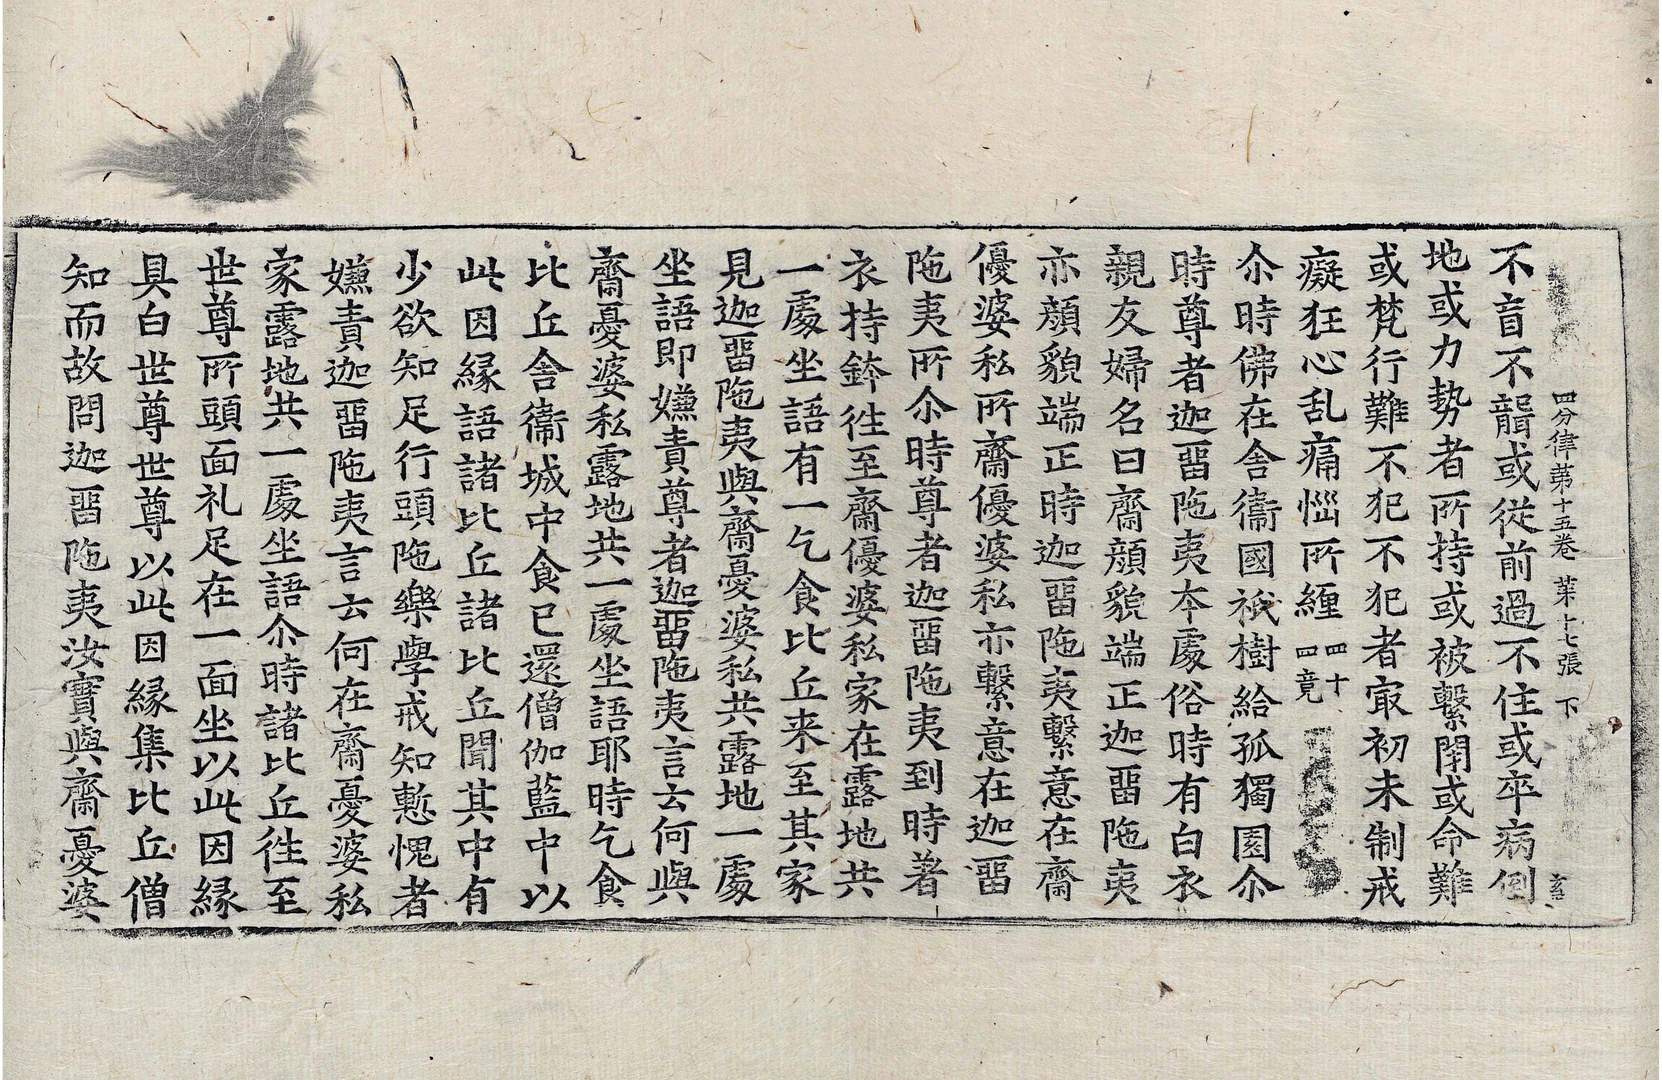 四分律苐十五卷 苐十七張 下
不盲不聾或從前過不住或卒病倒
地或力勢者所持或被繫閇或命難
或梵行難不犯不犯者㝡初未制戒
癡狂心乱痛惱所纏 四十四竟
尒時佛在舍衞國祇樹給孤獨園尒
時尊者迦畱陁夷本處俗時有白衣
親友婦名曰齋顔貌端正迦畱陁夷
亦顔貌端正時迦畱陁夷繫意在齋
優婆私所齋優婆私亦繫意在迦畱
陁夷所尒時尊者迦畱陁夷到時著
衣持鉢徃至齋優婆私家在露地共
一處坐語有一乞食比丘来至其家
見迦畱陁夷與齋憂婆私共露地一處
坐語即嫌責尊者迦畱陁夷言云何與
齋憂婆私露地共一處坐語耶時乞食
比丘舍衞城中食已還僧伽藍中以
此因縁語諸比丘諸比丘聞其中有
少欲知足行頭陁樂學戒知慙愧者
嫌責迦畱陁夷言云何在齋憂婆私
家露地共一處坐語尒時諸比丘徃至
世尊所頭面礼足在一面坐以此因縁
具白世尊世尊以此因縁集比丘僧
知而故問迦畱陁夷汝實與齋憂婆